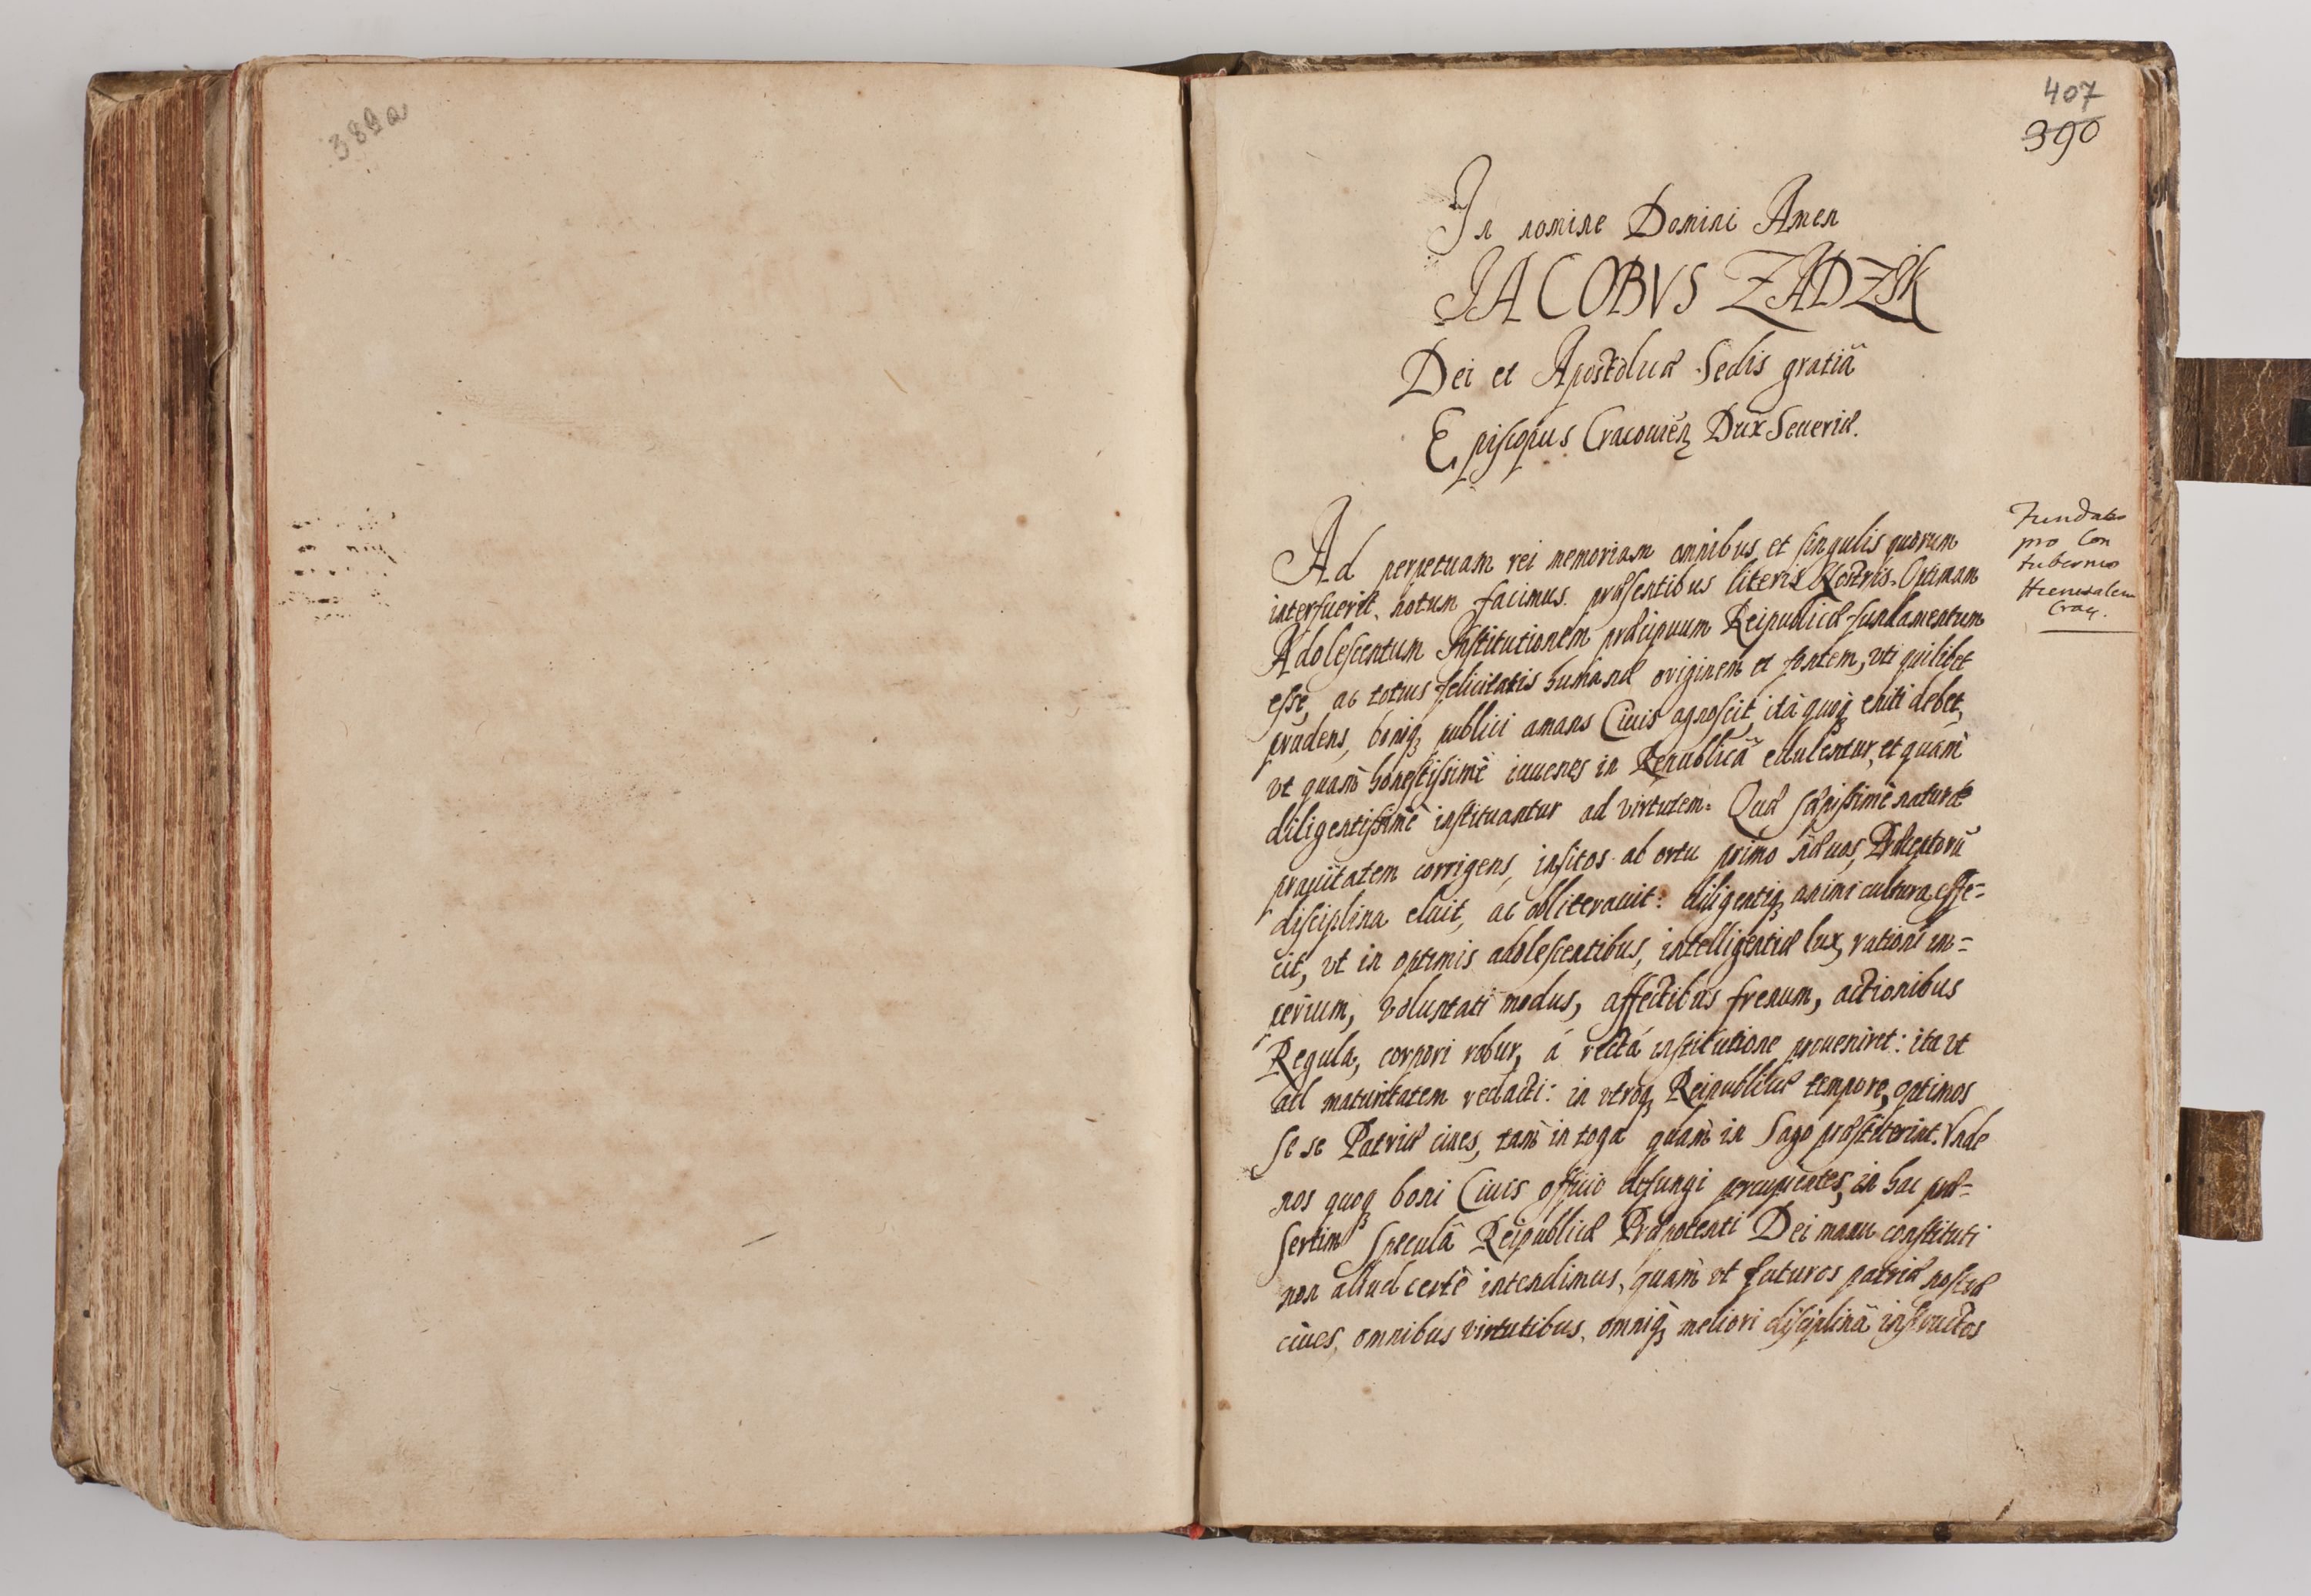 389a
407
390
In nomine Domini Amen
IACOBVS ZADZIK
Dei et Apostolicæ Sedis gratiâ
Episcopus Cracouien̄ Dux Seueriæ.
Ad perpetuam rei memoriam omnibus et singulis quorum
interfuerit, notum facimus præsentibus literis Nostris. Optimam
Adolescentum Institutionem præcipuum Reipublicæ fundamentum
esse, ac totius felicitatis humanæ originem et fontem, vti quilibet
prudens, boniq; publici amans Ciuis agnoscit, ità quoq; eniti debet,
vt quam̀ honestissimè iuuenes in Republicâ educentur, et quam̀
diligentissimè instituantur ad virtutem. Quæ sæpissimè naturæ
prauitatem corrigens, insitos ab ortu primo næuos, Præceptorū
disciplina eluit, ac obliterauit: diligentiq; animi cultura effe=
cit, vt in optimis adolescentibus, intelligentiæ lux, rationi im=
perium, voluntati modus, affectibus frenum, actionibus
Regula, corpori robur, á rectá institutione proueniret: ita vt
ad maturitatem redacti: in vtroq; Reipublicæ tempore, optimos
se se Patriæ ciues, tam̀ in toga quam̀ in Sago præstiterint. Vnde
nos quoq; boni Ciuis officio defungi percupientes, in hac præ=
sertim Speculâ Reipublicæ Præpotenti Dei manu constituti
non aliud certè intendimus, quam̀ vt futuros patriæ nostræ
ciues, omnibus virtutibus, omniq; meliori disciplinâ instructos
Fundatio
pro Con
tubernio
Hierusalem
Crac.